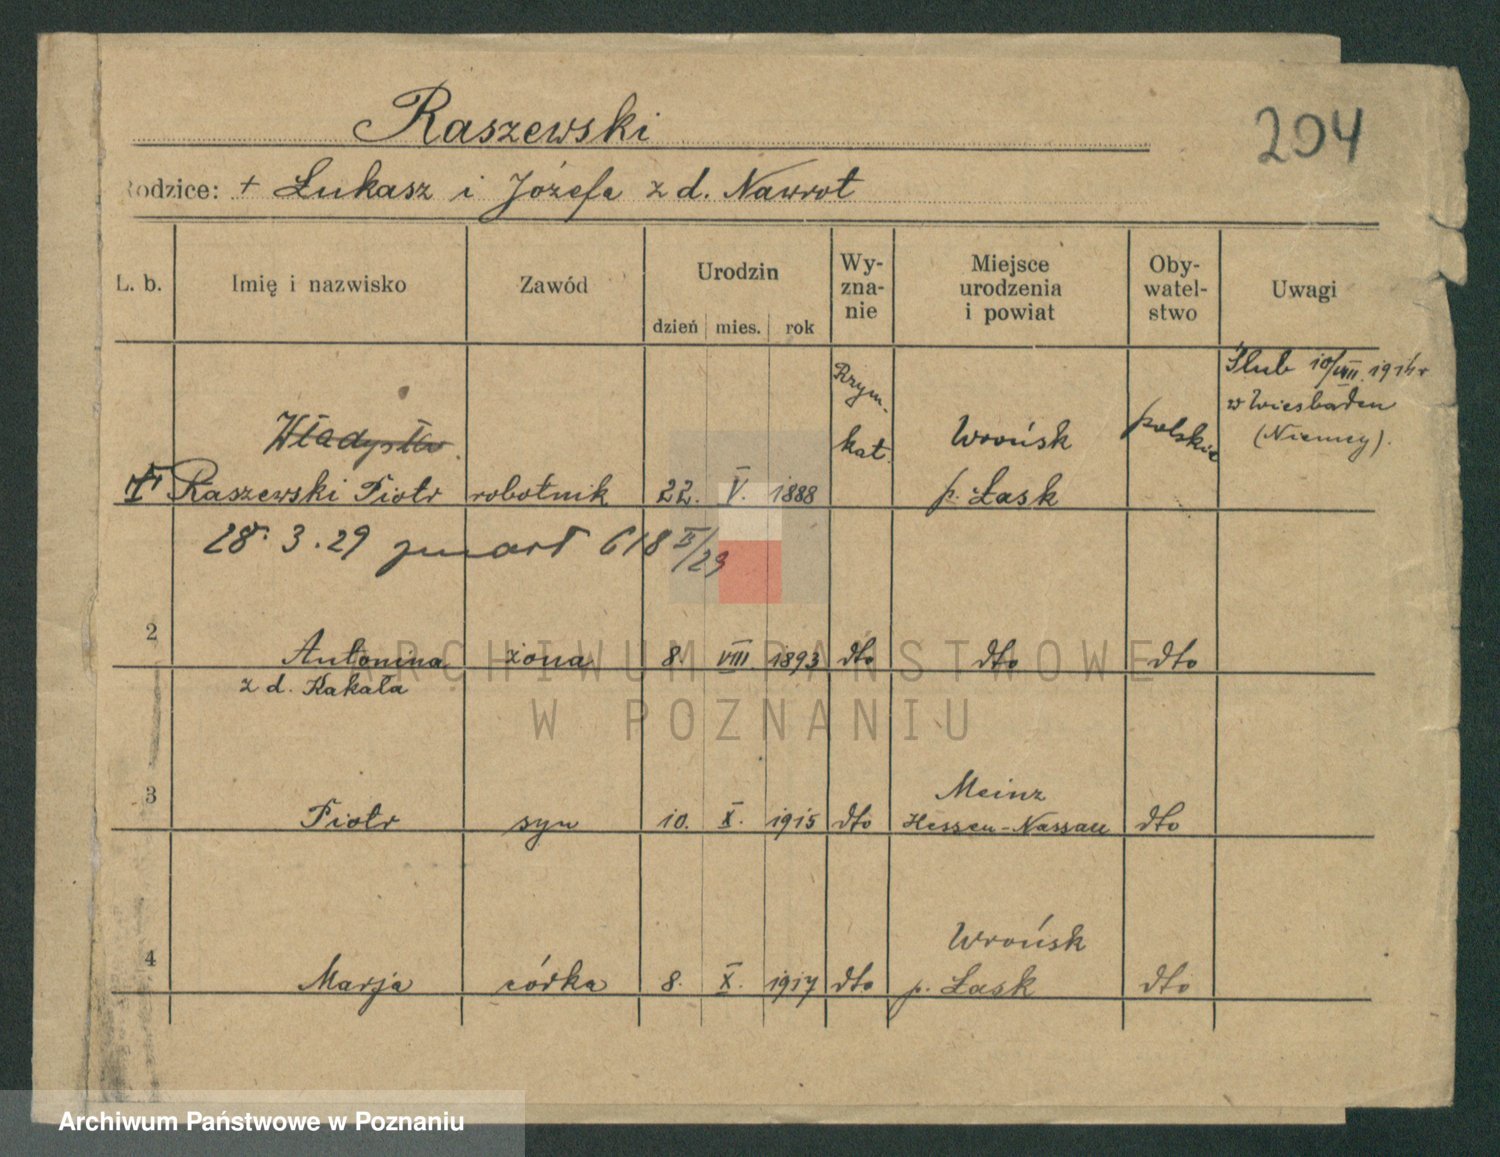 Raszewski
204
Rodzice: + Łukasz i Józefa z d. Nawrot
L. b.
Imię i nazwisko
Zawód
Urodzin
dzień mies. rok
Wy-
zna-
nie
Miejsce
urodzenia
i powiat
Oby-
watel-
stwo
Uwagi
Władysław
Raszewski Piotr robotnik 22. V. 1888
Rzym.
kat.
Wrońsk
p. Łask
polskie
Ślub 10/VIII. 1914 r
w Wiesbaden
(Niemcy).
28. 3. 29 zmarł 618 II/29
2 Antonina żona 8. VIII. 1893 dto dto dto
z d. Kakała
3 Piotr syn 10. X. 1915 dto
Meinz
Hessen-Nassau dto
4 Marja córka 8. X. 1917 dto
Wrońsk
p. Łask dto
ARCHIWUM PAŃSTWOWE
W POZNANIU
Archiwum Państwowe w Poznaniu